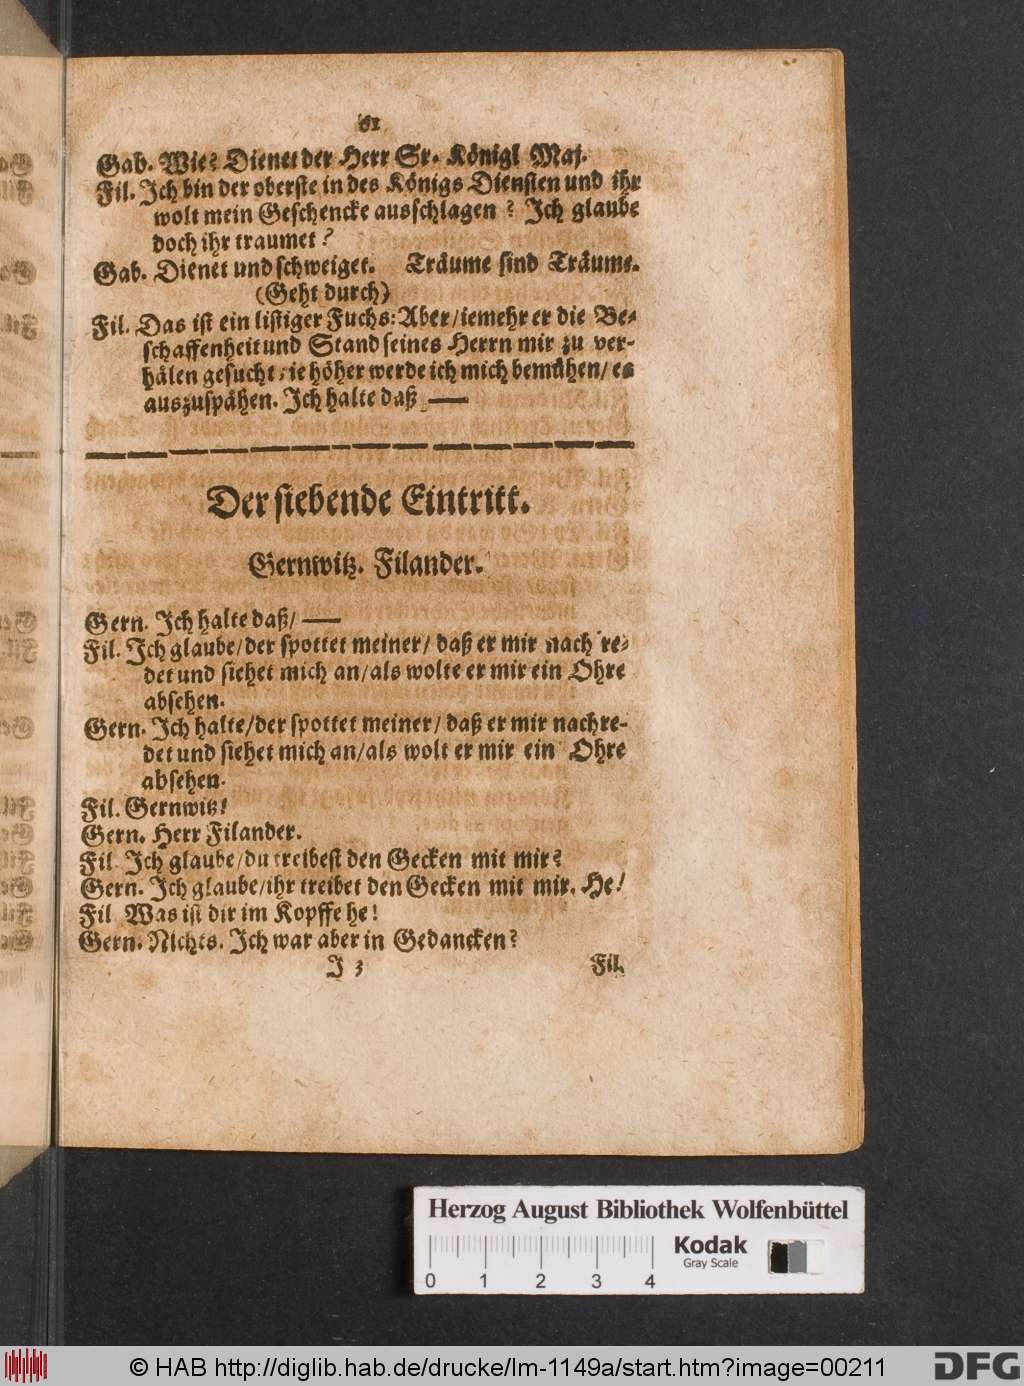 61
Gab. Wie? Dienet der Herr Sr. Königl Maj.
Fil. Ich bin der oberste in des Königs Diensten und ihr
wolt mein Geschencke ausschlagen? Ich glaube
doch ihr traumet?
Gab. Dienet und schweiget. Träume sind Träume.
(Geht durch)
Fil. Das ist ein listiger Fuchs: Aber/ iemehr er die Be-
schaffenheit und Stand seines Herrn mir zu ver-
hälen gesucht; ie höher werde ich mich bemühen/ es
auszuspähen. Ich halte daß —
Der siebende Eintritt.
Gernwitz. Filander.
Gern. Ich halte daß/ —
Fil. Ich glaube/ der spottet meiner/ daß er mir nach re-
det und siehet mich an/ als wolte er mir ein Ohre
absehen.
Gern. Ich halte/ der spottet meiner/ daß er mir nachre-
det und siehet mich an/ als wolt er mir ein Ohre
absehen.
Fil. Gernwitz!
Gern. Herr Filander.
Fil Ich glaube/ du treibest den Gecken mit mir?
Gern. Ich glaube/ ihr treibet den Gecken mit mir. He!
Fil Was ist dir im Kopffe he!
Gern. Nichts. Ich war aber in Gedancken?
I 3 Fil.
Herzog August Bibliothek Wolfenbüttel
Kodak
Gray Scale
0 1 2 3 4
© HAB http://diglib.hab.de/drucke/lm-1149a/start.htm?image=00211
DFG